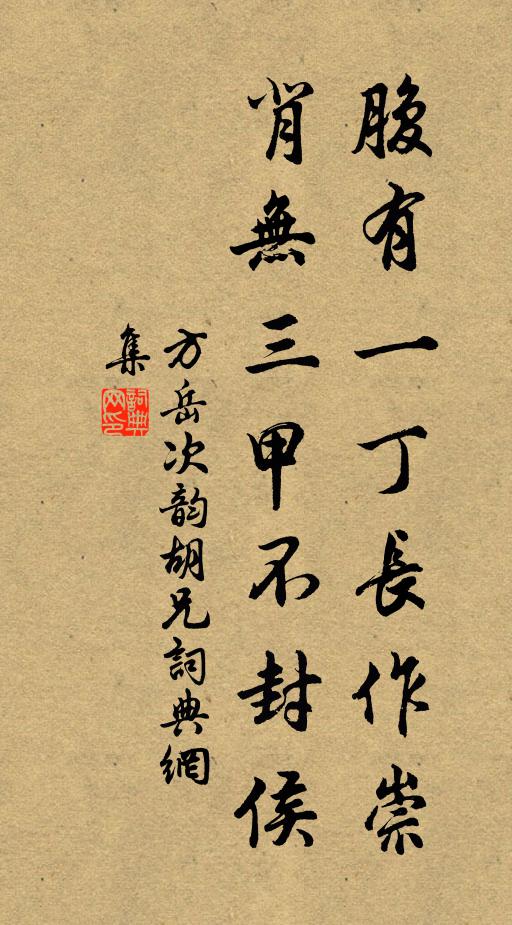 腹有一丁長作崇
背無三甲不封侯
方岳次韵胡兄詞典網
集
詞典
网印